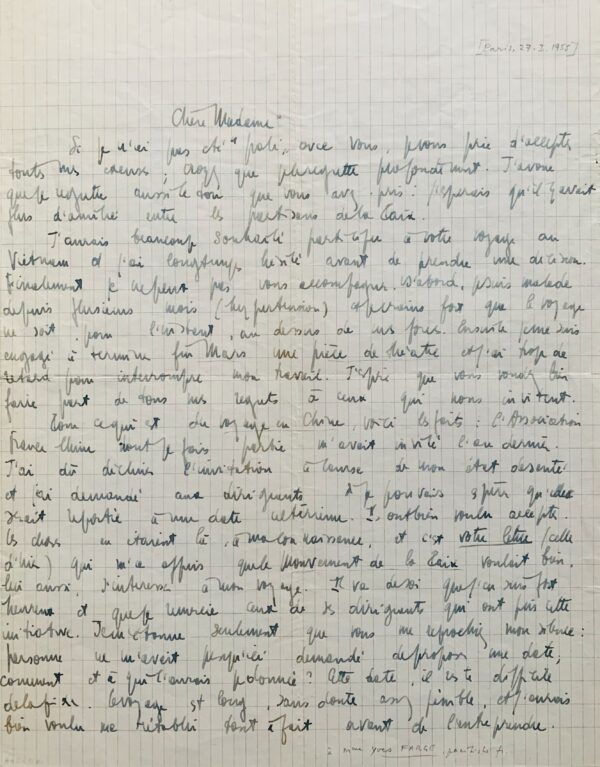 [Paris, 27.I.1955]
Chère Madame
Si je n'ai pas été "poli" avec vous, je vous prie d'accepter
toutes mes excuses ; croyez que je le regrette profondément. J'avoue
que je regrette aussi le ton que vous avez pris : j'espérais qu'il y avait
plus d'amitié entre les partisans de la Paix.
J'aurais beaucoup souhaité participer à votre voyage au
Vietnam et j'ai longtemps hésité avant de prendre une décision.
Finalement je ne peux pas vous accompagner. D'abord, je suis malade
depuis plusieurs mois (hypertension) et je crains fort que le voyage
ne soit, pour l'instant, au dessus de mes forces. Ensuite je me suis
engagé à terminer fin Mars une pièce de théâtre et j'ai trop de
retard pour interrompre mon travail. J'espère que vous voudrez bien
faire part de tous mes regrets à ceux qui nous invitent.
Pour ce qui est du voyage en Chine, voici les faits : l'Association
France Chine dont je fais partie m'avait invité l'an dernier.
J'ai dû décliner l'invitation à cause de mon état de santé
et j'ai demandé aux dirigeants si je pouvais espérer qu'elle
serait reportée à une date ultérieure. Ils ont bien voulu accepter.
Les choses en étaient là, à ma connaissance, et c'est votre lettre (celle
d'hier) qui m'a appris que le Mouvement de la Paix voulait bien,
lui aussi, s'intéresser à mon voyage. Il va de soi que j'en suis fort
heureux et que je remercie ceux de ses dirigeants qui ont pris cette
initiative. Je m'étonne seulement que vous me reprochiez mon silence :
personne ne m'avait jusqu'ici demandé de proposer une date,
comment et à qui l'aurais-je donnée ? Cette date, il est difficile
de la fixer. Le voyage est long, sans doute assez pénible, et j'aurais
bien voulu me rétablir tout à fait avant de l'entreprendre.
à Mme Yves FARGE